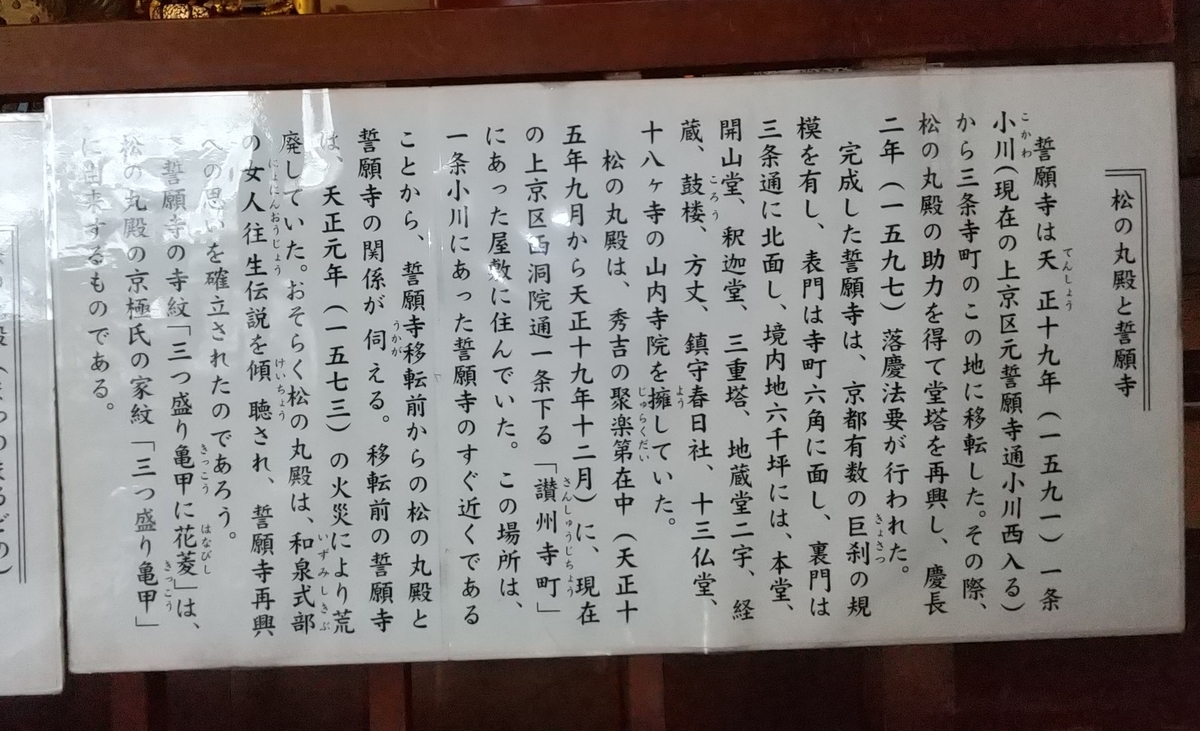 松の丸殿と誓願寺
誓願寺は天正十九年（一五九一）一条
小川（現在の上京区元誓願寺通小川西入る）
から三条寺町のこの地に移転した。その際、
松の丸殿の助力を得て堂塔を再興し、慶長
二年（一五九七）落慶法要が行われた。
完成した誓願寺は、京都有数の巨刹の規
模を有し、表門は寺町六角に面し、裏門は
三条通に北面し、境内地六千坪には、本堂、
開山堂、釈迦堂、三重塔、地蔵堂二宇、経
蔵、鼓楼、方丈、鎮守春日社、十三仏堂、
十八ヶ寺の山内寺院を擁していた。
松の丸殿は、秀吉の聚楽第在中（天正十
五年九月から天正十九年十二月）に、現在
の上京区西洞院通一条下る「讃州寺町」
にあった屋敷に住んでいた。この場所は、
一条小川にあった誓願寺のすぐ近くである
ことから、誓願寺移転前からの松の丸殿と
誓願寺の関係が伺える。移転前の誓願寺
は、天正元年（一五七三）の火災により荒
廃していた。おそらく松の丸殿は、和泉式部
の女人往生伝説を傾聴され、誓願寺再興
への思いを確立されたのであろう。
誓願寺の寺紋「三つ盛り亀甲に花菱」は、
松の丸殿の京極氏の家紋「三つ盛り亀甲」
に由来するものである。